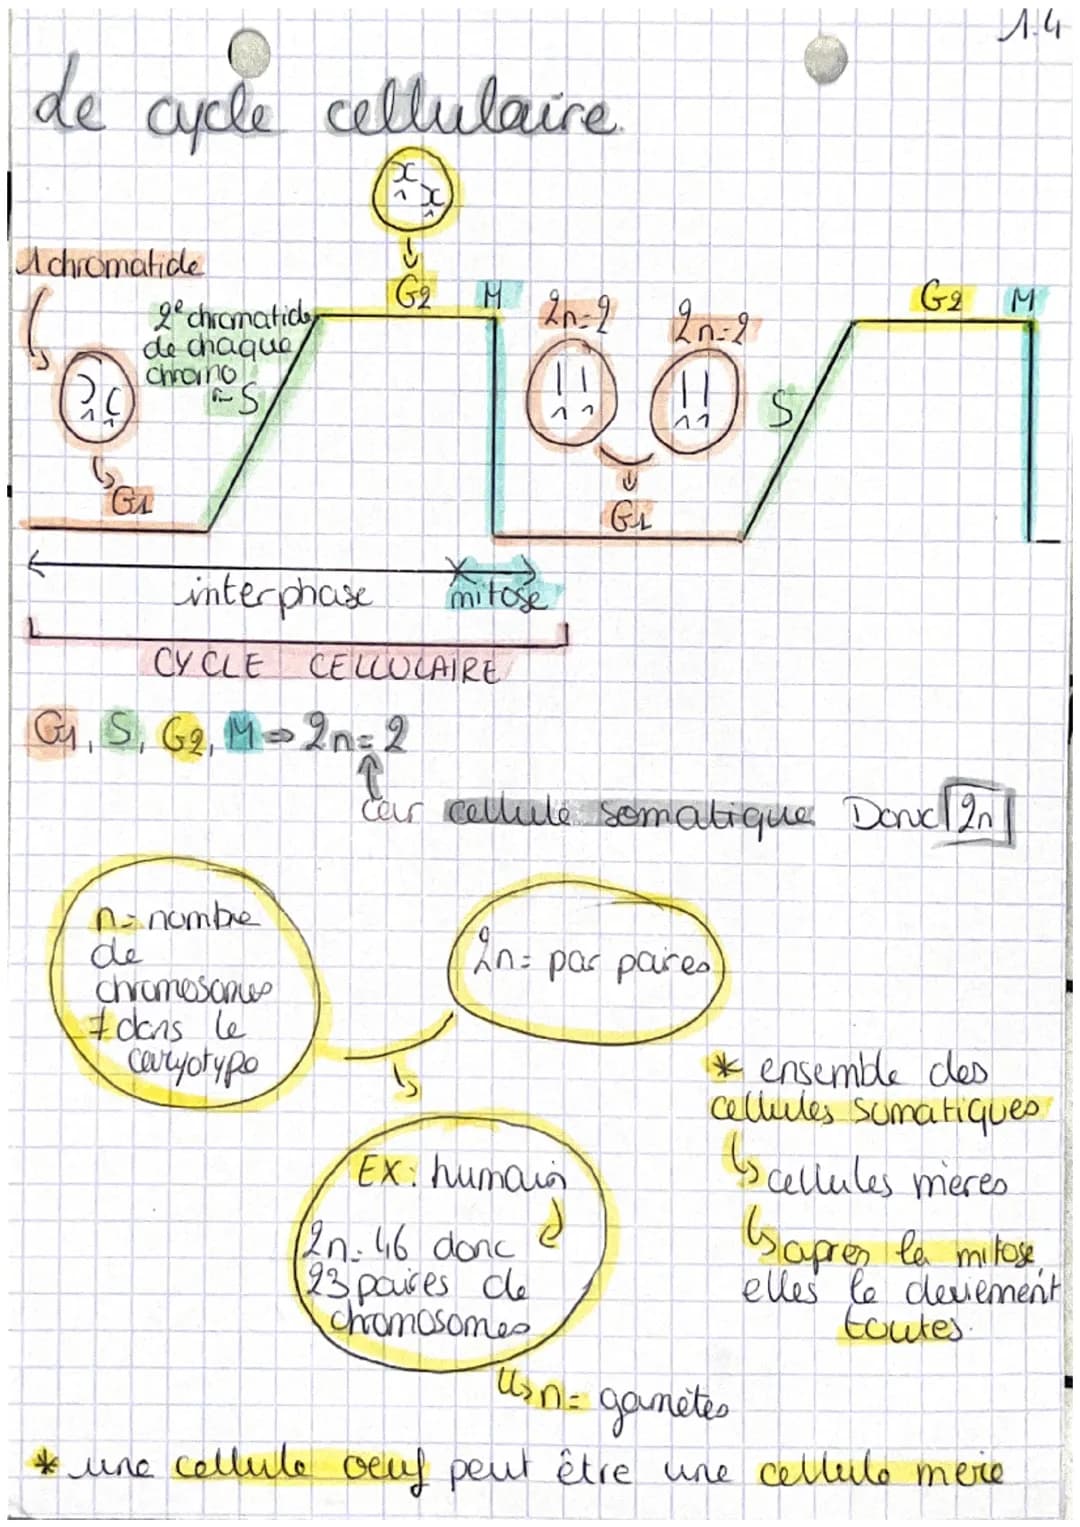 1.4
de cycle cellulaire.
1 chromatide
2e chromatide
de chaque
chromo
S
G1
G2
M
2n=2
2n=2
G1
S
G2
M
interphase
mitose
CYCLE CELLULAIRE
G1, S, G2, M ⇒ 2n = 2
car cellule somatique Donc 2n
n = nombre
de
chromosomes
≠ dans le
caryotype
2n = par paires
EX: humain
2n = 46 donc
23 paires de
chromosomes
n = gamètes
* ensemble des
cellules somatiques
↳ cellules mères
↳ après la mitose,
elles le deviennent
toutes.
* une cellule oeuf peut être une cellule mère